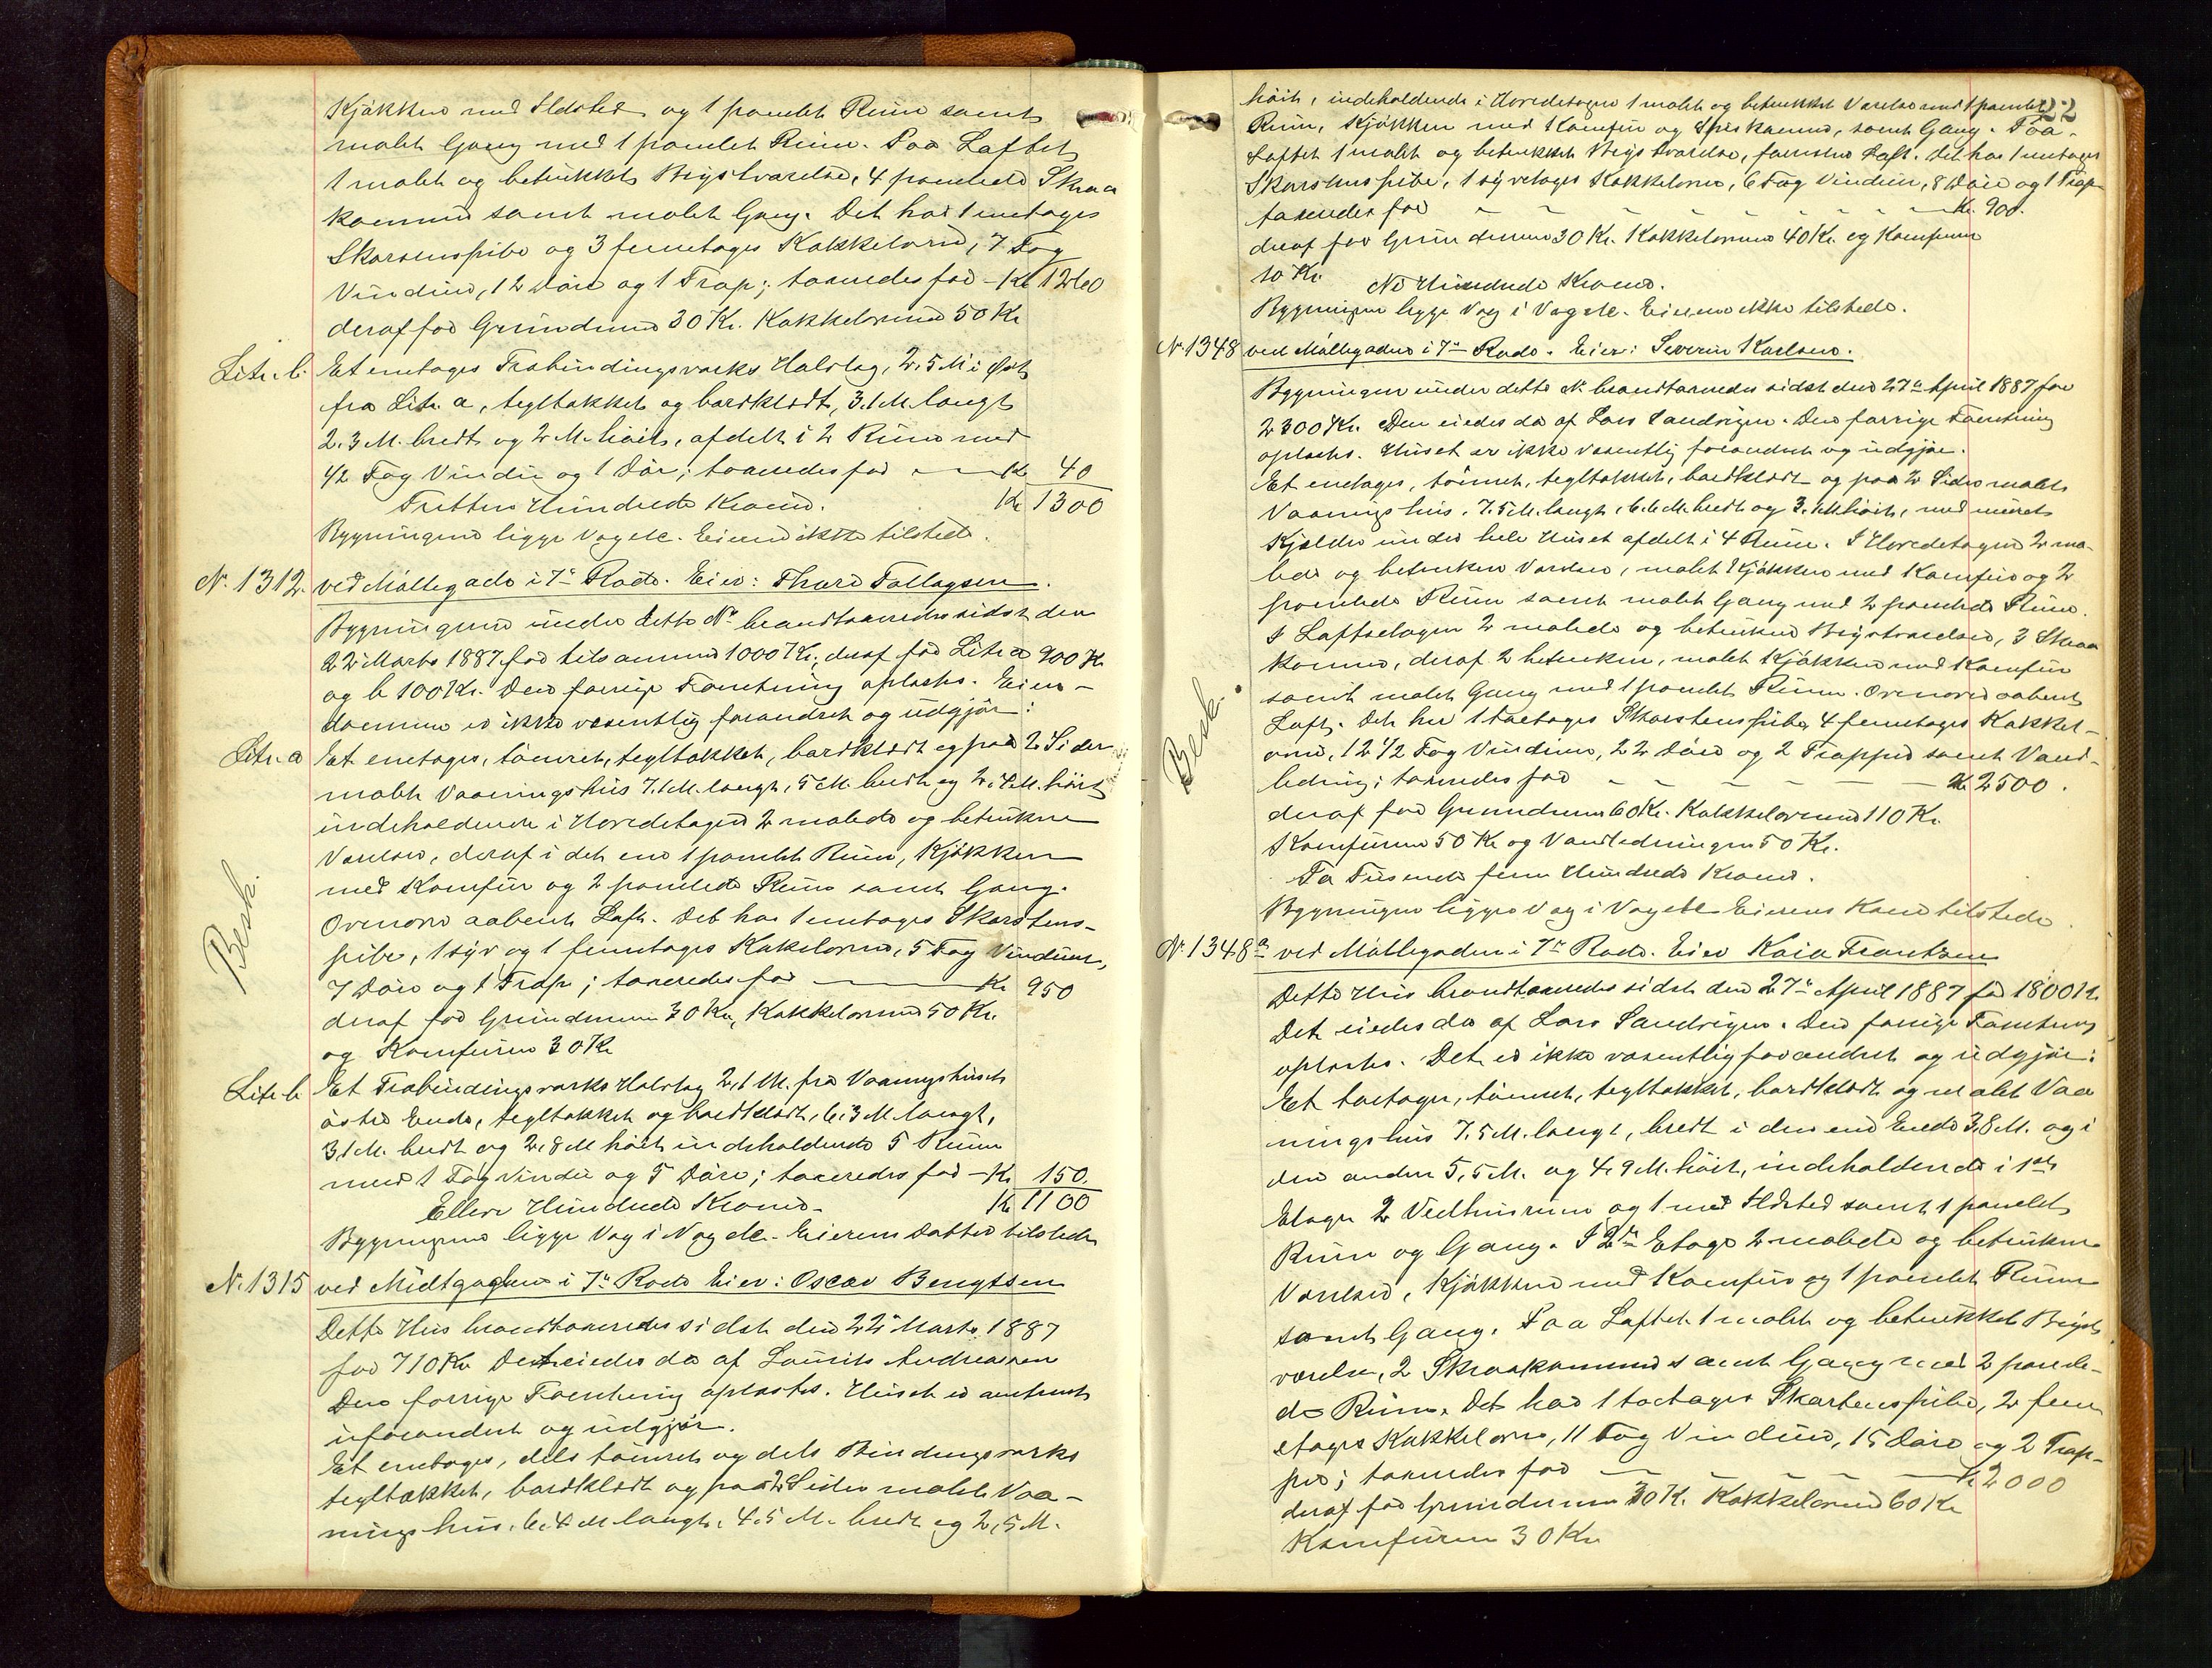 Kjøkken med Ildsted og 1 panelet Rum samt
malet Gang med 1 panelet Rum. Paa Loftet
1 malet og betrukket Brystværelse, 4 panelede Skraa
kammere samt malet Gang. Det har 1 enetages
Skorstenspibe og 3 femetages Kakkelovne, 7 Fag
Vinduer, 12 Døre og 1 Trap; taxeredes for - Kr. 1260
deraf for Grundmuren 30 Kr. Kakkelovnene 50 Kr.
Litr. b. Et enetages Træbindingsværks Halvtag, 2,5 M. i Øst
fra Litr. a, tegltækket og bordklædt, 3.1 M. langt
2.3 M. bredt og 2 M. høit, afdelt i 2 Rum med
1/2 Fag Vindu og 1 Dør; taxeredes for — Kr. 40
Tretten Hundrede Kroner. Kr. 1300
Bygningerne ligge Væg etc. Eieren ikke tilstede.
N. 1312. ved Møllegaden i 7de Rode. Eier: Thore Tallagsen.
Bygningerne under dette No. brandtaxeredes sidst den
22de Marts 1887 for tilsammen 1000 Kr., deraf for Litr. a 900 Kr.
og b 100 Kr. Den forrige Forretning oplæstes. Eien-
dommen er ikke væsentlig forandret og udgjør:
Litr. a Et enetages, tømret, tegltækket, bordklædt og paa 2 Sider
malet Vaaningshus 7.1 M. langt, 5 M. bredt og 2.4 M. høit
indeholdende i Hovedetagen 2 malede og betrukne
Værelser, deraf i det ene 1 panelet Rum, Kjøkken
med Komfur og 2 panelede Rum samt Gang.
Ovenover aabent Loft. Det har 1 enetages Skorstens-
pibe, 1 syv og 1 femetages Kakelovne, 5 Fag Vinduer,
7 Døre og 1 Trap; taxeredes for — Kr. 950
deraf for Grundmuren 30 Kr., Kakkelovnene 50 Kr.
og Komfuren 30 Kr.
Besk.
Litr. b Et Træbindingsværks Halvtag 2,1 M. fra Vaaningshusets
østre Ende, tegltækket og bordklædt, 6.3 M. langt,
3,1 M. bredt og 2,8 M. høit indeholdende 5 Rum
med 1 Fag Vindu og 5 Døre; taxeredes for - Kr. 150.
Elleve Hundrede Kroner. Kr. 1100
Bygningerne ligge Væg i Væg etc. Eierens Datter tilstede
N. 1315 ved Midtgaden i 7de Rode Eier: Oscar Bengtsen
Dette Hus brandtaxeredes sidst den 22de Marts 1887
for 710 Kr. Det eiedes da af Laurits Andreassen
Den forrige Forretning oplæstes. Huset er omtrent
uforandret og udgjør.
Et enetages, dels tømret og dels Bindingsværks
tegltækket, bordklædt og paa 2 Sider malet Vaa-
ningshus. 6.4 M. langt, 4.5 M. bredt og 2,5 M.
22
høit, indeholdende i Hovedetagen 1 malet og betrukket Værelse med 1 panelet
Rum, Kjøkken med Komfur og Spiskammer, samt Gang. Paa
Loftet 1 malet og betrukket Bryst Værelse, forøvrigt Loft. Det har 1 enetages
Skorstenspibe, 1 syvetages Kakkelovn, 6 Fag Vinduer, 8 Døre og 1 Trap
taxeredes for - - - - Kr. 900.
deraf for Grundmuren 30 Kr. Kakkelovnene 40 Kr. og Komfuren
10 Kr. Ni Hundrede Kroner.
Bygningen ligger Væg i Væg etc. Eieren ikke tilstede.
N. 1348 ved Møllegaden i 7de Rode. Eier: Severin Karlsen.
Bygningen under dette No. brandtaxeredes sidst den 27de April 1887 for
2300 Kr. Den eiedes da af Lars Sandvigen. Den forrige Forretning
oplæstes. Huset er ikke væsentlig forandret og udgjør.
Et enetages, tømret, tegltækket, bordklædt og paa 2 Sider malet
Vaaningshus. 7.5 M. langt, 6.6 M. bredt og 3.1 M. høit, med muret
Kjælder under hele Huset afdelt i 4 Rum. I Hovedetagen 2 ma-
lede og betrukne Værelser, malet Kjøkken med Komfur og 2
panelede Rum samt malet Gang med 2 panelede Rum.
I Loftsetagen 2 malede og betrukne Brystværelser, 3 Skraa
kammere, deraf 2 betrukne, malet Kjøkken med Komfur
samt malet Gang med 1 panelet Rum. Ovenover aabent
Loft. Det har 1 toetages Skorstenspibe, 4 femetages Kakkel-
ovne, 12 1/2 Fag Vinduer, 22 Døre og 2 Trapper samt Vand-
ledning; taxeredes for - - - Kr. 2500.
deraf for Grundmuren 60 Kr. Kakkelovnene 110 Kr.
Komfurene 50 Kr. og Vandledningen 50 Kr.
To Tusende fem Hundrede Kroner.
Bygningen ligger Væg i Væg etc. Eierens Kone tilstede
Besk.
N. 1348a ved Møllegaden i 7de Rode. Eier Kaia Frantzen
Dette Hus brandtaxeredes sidst den 27de April 1887 for 1800 Kr.
Det eiedes da af Lars Sandvigen. Den forrige Forretning
oplæstes. Det er ikke væsentlig forandret og udgjør:
Et toetages, tømret, tegltækket, bordklædt og malet Vaa
ningshus 7.5 M. langt, bredt i den ene Ende 3,8 M. og i
den anden 5,5 M. og 4,9 M. høit, indeholdende i 1ste
Etage 2 Vedhusrum og 1 med Ildsted samt 1 panelet
Rum og Gang. I 2den Etage 2 malede og betrukne
Værelser, Kjøkken med Komfur og 1 panelet Rum
samt Gang. Paa Loftet 1 malet og betrukket Bryst
værelse, 2 Skraakammere samt Gang med 2 panele-
de Rum. Det har 1 toetages Skorstenspibe, 2 fem
etages Kakkelovne, 11 Fag Vinduer, 15 Døre og 2 Trap-
per; taxeredes for - - - Kr. 2000
deraf for Grundmuren 30 Kr. Kakkelovnene 60 Kr.
Komfuren 30 Kr.